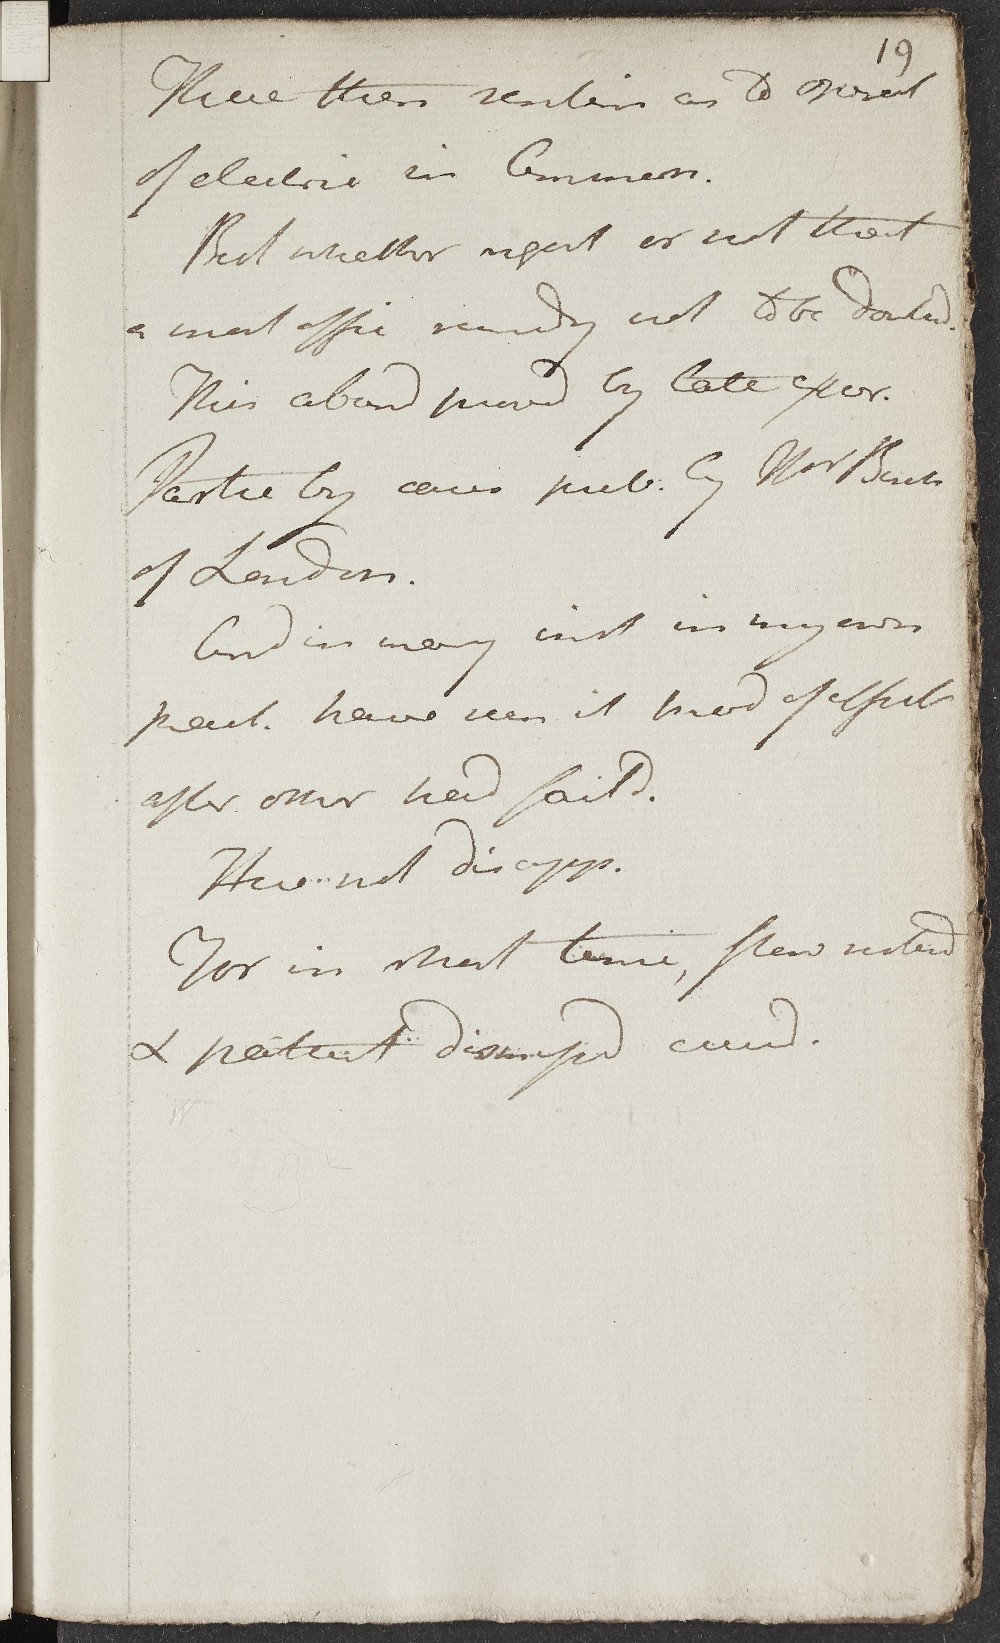 19
These then sentim as to operat
of electric in Common.
But whether right or not that
a most effic remedy not to be doubted.
This aband proved by late exper.
Partic by cases pub. by Mr Birch
of London.
And in many inst in my own
pract. have seen it prod of effect
after other had fail'd.
Here not disapp.
For in short time, flow restord
& patient dismiss'd cured.